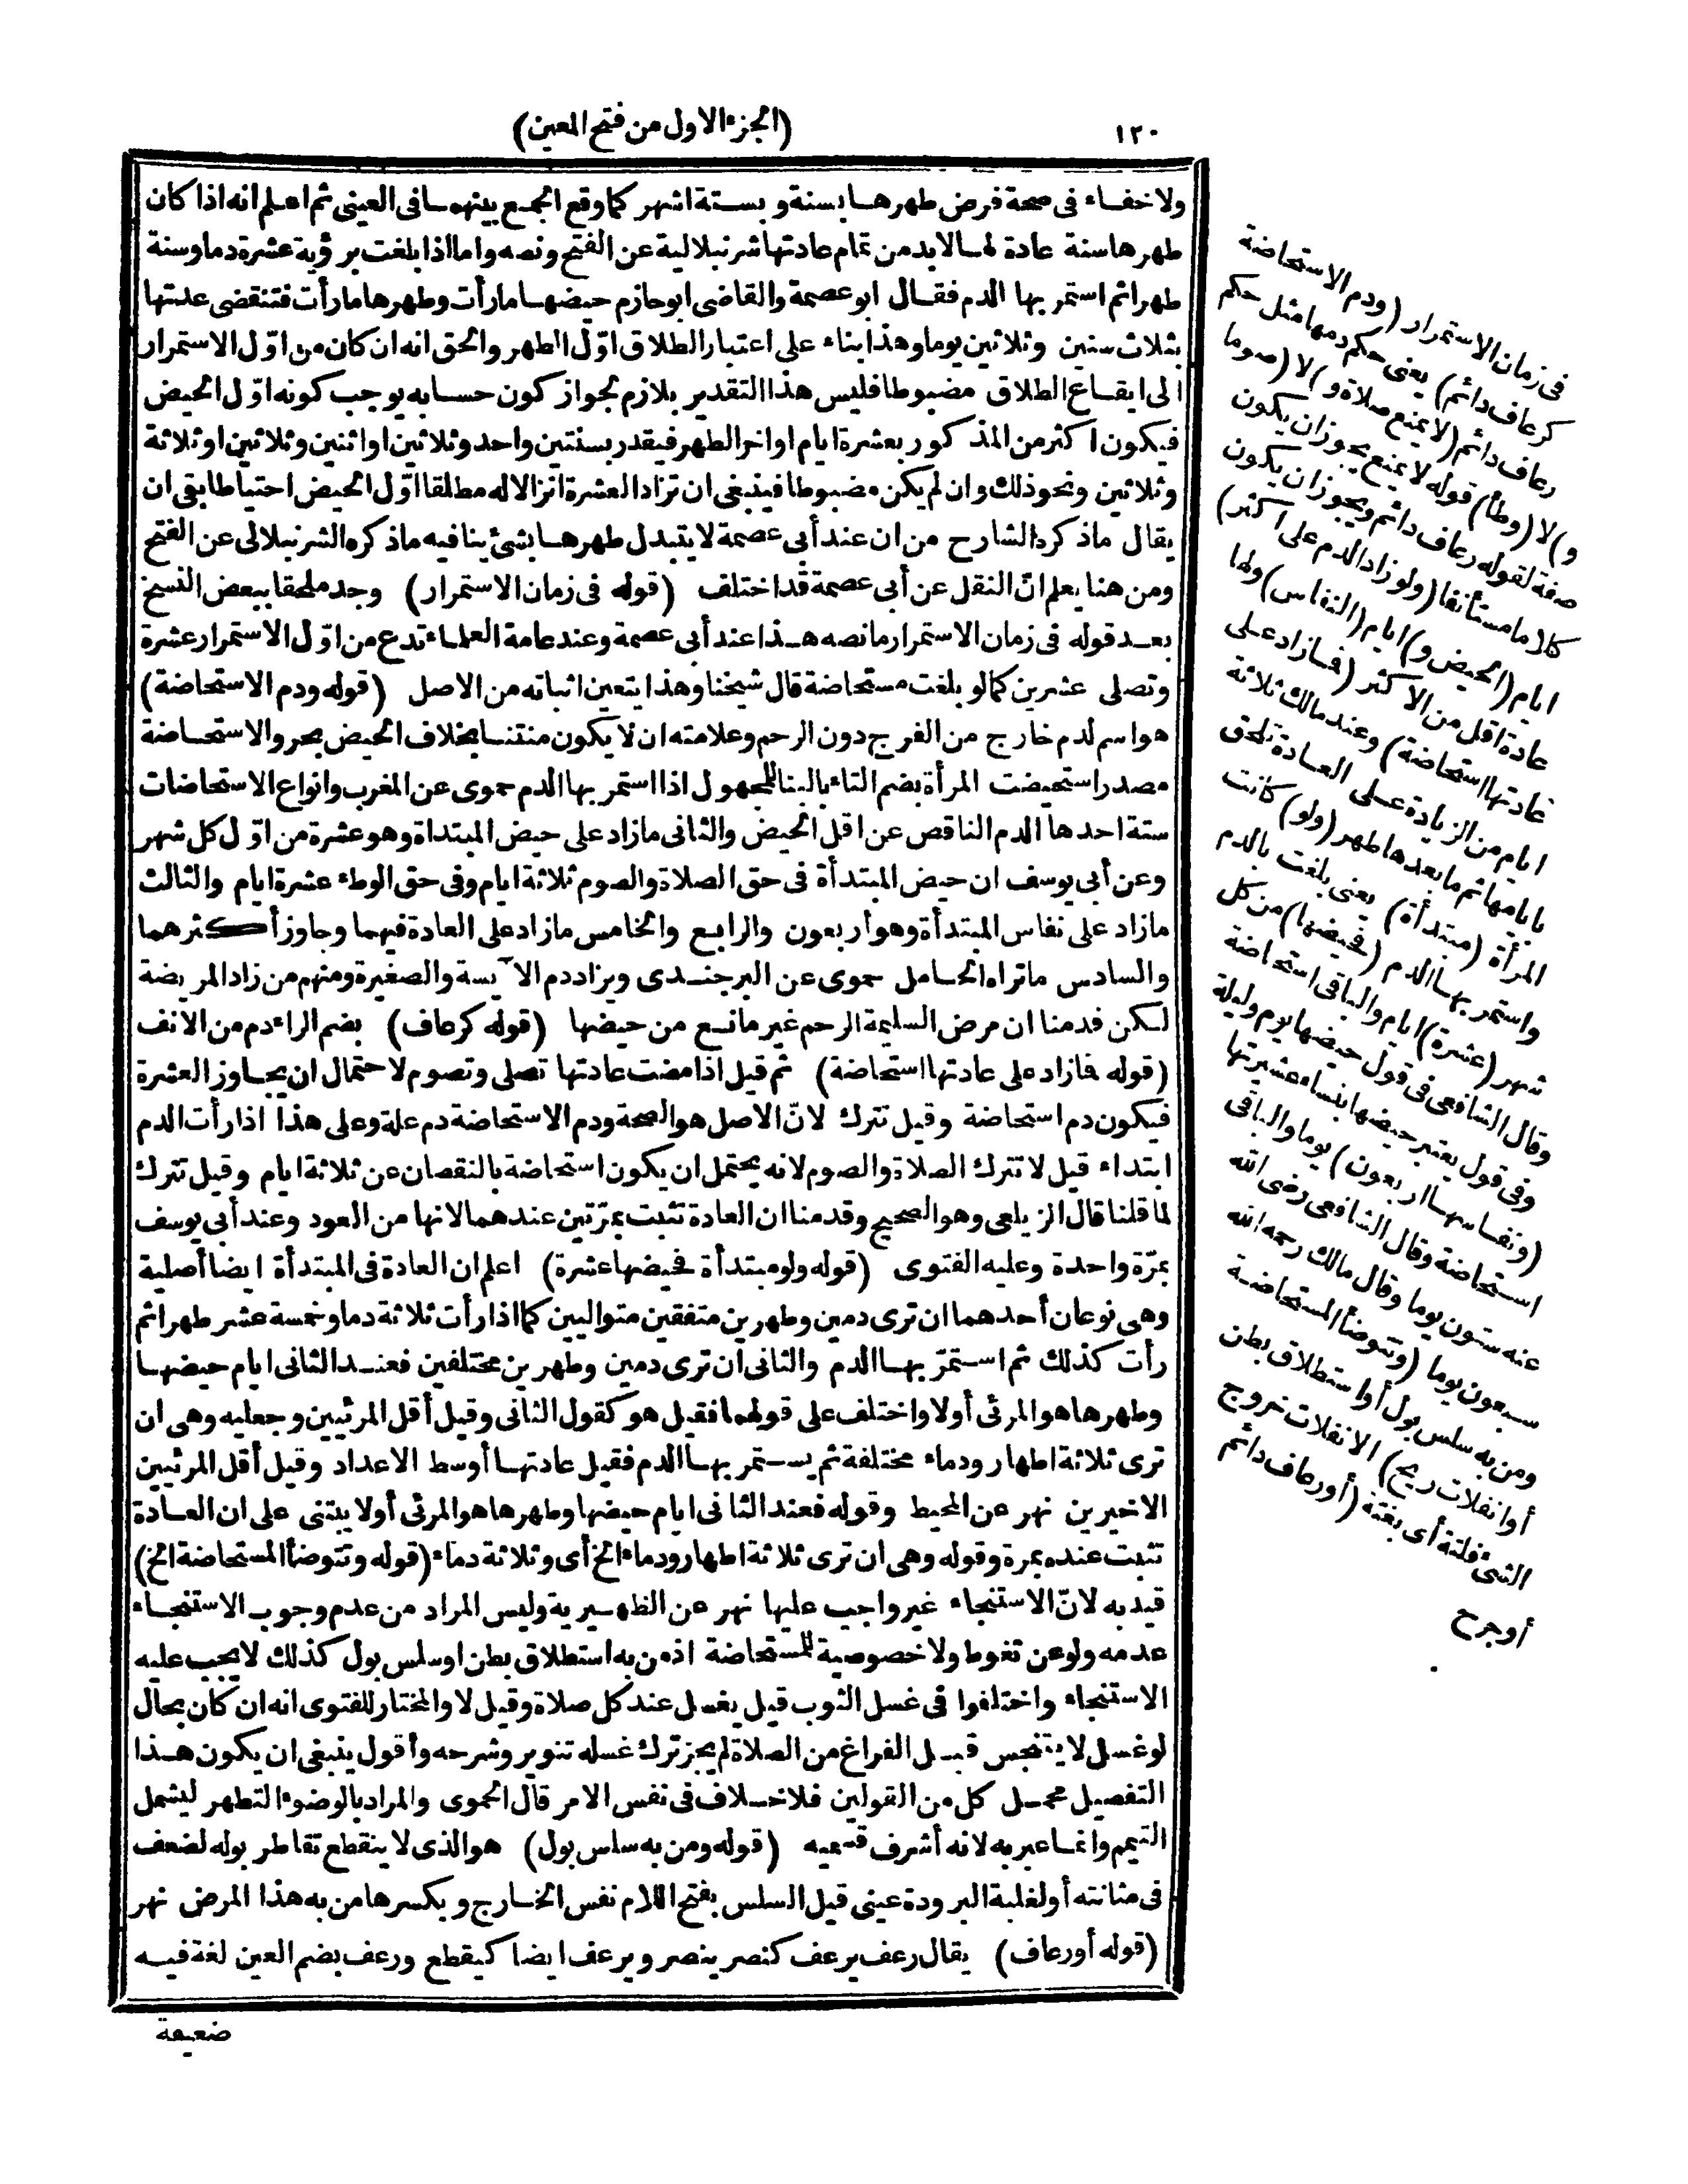 ١٢٠
(الجزء الاول من فتح المعين)
ولا خفاء فى صحة فرض طهرها بسنة و بستة اشهر كما وقع الجمع بينهما فى العينى ثم اعلم انه اذا كان
طهرها سنة عادة لها لابد من تمام عادتها شرنبلالية عن الفتح ونصه واما اذا بلغت برؤية عشرة دما وسنة
طهرا ثم استمر بها الدم فقال ابو عصمة والقاضى ابو حازم حيضها ما رأت وطهرها ما رأت فتنقضى عدتها
بثلاث سنين وثلاثين يوما وهذا بناء على اعتبار الطلاق اوّل الطهر والحق انه ان كان من اوّل الاستمرار
الى ايقاع الطلاق مضبوطا فليس هذا التقدير بلازم لجواز كون حسابه يوجب كونه اوّل الحيض
فيكون اكثر من المذكور بعشرة ايام او اخر الطهر فيقدر بسنتين واحد وثلاثين او اثنين وثلاثين او ثلاثة
وثلاثين ونحو ذلك وان لم يكن مضبوطا فينبغى ان تزاد العشرة انزالا له مطلقا اوّل الحيض احتياطا بقى ان
يقال ما ذكره الشارح من ان عند أبى عصمة لا يتبدل طهرها بشئ ينافيه ما ذكره الشرنبلالى عن الفتح
ومن هنا يعلم انّ النقل عن أبى عصمة قد اختلف (قوله فى زمان الاستمرار) وجد ملحقا ببعض النسخ
بعد قوله فى زمان الاستمرار ما نصه هذا عند أبى عصمة وعند عامة العلماء تدع من اوّل الاستمرار عشرة
وتصلى عشرين كما لو بلغت مستحاضة قال شيخنا وهذا يتعين اثباته من الاصل (قوله ودم الاستحاضة)
هو اسم لدم خارج من الفرج دون الرحم وعلامته ان لا يكون منتنا بخلاف الحيض بحر والاستحاضة
مصدر استحيضت المرأة بضم التاء بالبنا للمجهول اذا استمر بها الدم حموى عن المغرب وانواع الاستحاضات
ستة احدها الدم الناقص عن اقل الحيض والثانى ما زاد على حيض المبتداة وهو عشرة من اوّل كل شهر
وعن أبى يوسف ان حيض المبتدأة فى حق الصلاة والصوم ثلاثة ايام وفى حق الوطء عشرة ايام والثالث
ما زاد على نفاس المبتدأة وهو أربعون والرابع والخامس ما زاد على العادة فيهما وجاوز أكثرهما
والسادس ما تراه الحامل حموى عن البرجندى ويزاد دم الآيسة والصغيرة ومنهم من زاد المريضة
لكن قدمنا ان مرض السليمة الرحم غير مانع من حيضها (قوله كرعاف) بضم الراء دم من الانف
(قوله فما زاد على عادتها استحاضة) ثم قيل اذا مضت عادتها تصلى وتصوم لاحتمال ان يجاوز العشرة
فيكون دم استحاضة وقيل تترك لانّ الاصل هو الصحة ودم الاستحاضة دم علة وعلى هذا اذا رأت الدم
ابتداء قيل لا تترك الصلاة والصوم لانه يحتمل ان يكون استحاضة بالنقصان عن ثلاثة ايام وقيل تترك
لما قلنا قال الزيلعى وهو الصحيح وقدمنا ان العادة تثبت بمرّتين عندهما لانها من العود وعند أبى يوسف
بمرّة واحدة وعليه الفتوى (قوله ولو مبتدأة فحيضها عشرة) اعلم ان العادة فى المبتدأة ايضا أصلية
وهى نوعان أحدهما ان ترى دمين وطهرين متفقين متواليين كما اذا رأت ثلاثة دما وخمسة عشر طهرا ثم
رأت كذلك ثم استمرّ بها الدم والثانى ان ترى دمين وطهرين مختلفين فعند الثانى ايام حيضها
وطهرها هو المرئى أولا واختلف على قولهما فقيل هو كقول الثانى وقيل أقل المرئيين وجعلية وهى ان
ترى ثلاثة اطهار ودماء مختلفة ثم يستمر بها الدم فقيل عادتها أوسط الاعداد وقيل أقل المرئيين
الاخيرين نهر عن المحيط وقوله فعند الثانى ايام حيضها وطهرها هو المرئى أولا يبتنى على ان العادة
تثبت عنده بمرة وقوله وهى ان ترى ثلاثة اطهار ودماء الخ أى وثلاثة دماء (قوله وتتوضأ المستحاضة الخ)
قيد به لانّ الاستنجاء غير واجب عليها نهر عن الظهيرية وليس المراد من عدم وجوب الاستنجاء
عدمه ولو عن تغوط ولا خصوصية للمستحاضة اذ من به استطلاق بطن او سلس بول كذلك لا يجب عليه
الاستنجاء واختلفوا فى غسل الثوب قيل يغسل عند كل صلاة وقيل لا والمختار للفتوى انه ان كان بحال
لو غسل لا يتنجس قبل الفراغ من الصلاة لم يجز ترك غسله تنوير وشرحه وأقول ينبغى ان يكون هذا
التفصيل محمل كل من القولين فلا خلاف فى نفس الامر قال الحموى والمراد بالوضوء التطهر ليشمل
التيمم وانما عبر به لانه أشرف قسميه (قوله ومن به سلس بول) هو الذى لا ينقطع تقاطر بوله لضعف
فى مثانته أو لغلبة البرودة عينى قيل السلس بفتح اللام نفس الخارج وبكسرها من به هذا المرض نهر
(قوله أو رعاف) يقال رعف يرعف كنصر ينصر ويرعف ايضا كيقطع ورعف بضم العين لغة فيه
ضعيفة
فى زمان الاستمرار (ودم الاستحاضة
كرعاف دائم) يعنى حكم دمها مثل حكم
رعاف دائم (لا يمنع صلاة و) لا (صوما
و) لا (وطأ) قوله لا يمنع يجوز ان يكون
صفة لقوله رعاف دائم ويجوز ان يكون
كلاما مستأنفا (ولو زاد الدم على اكثر)
ايام (الحيض و) ايام (النفاس) ولها
عادة اقل من الاكثر (فما زاد على
عادتها استحاضة) وعند مالك ثلاثة
ايام من الزيادة على العادة تلحق
بايامها ثم ما بعدها طهر (ولو) كانت
المرأة (مبتدأة) يعنى بلغت بالدم
واستمر بها الدم (فحيضها) من كل
شهر (عشرة) ايام والباقى استحاضة
وقال الشافعى فى قول حيضها يوم وليلة
وفى قول يعتبر حيضها بنساء عشيرتها
(ونفاسها اربعون) يوما والباقى
استحاضة وقال الشافعى رضى الله
عنه ستون يوما وقال مالك رحمه الله
سبعون يوما (وتتوضأ المستحاضة
ومن به سلس بول أو استطلاق بطن
أو انفلات ريح) الانفلات خروج
الشئ فلتة أى بغتة (أو رعاف دائم
أو جرح